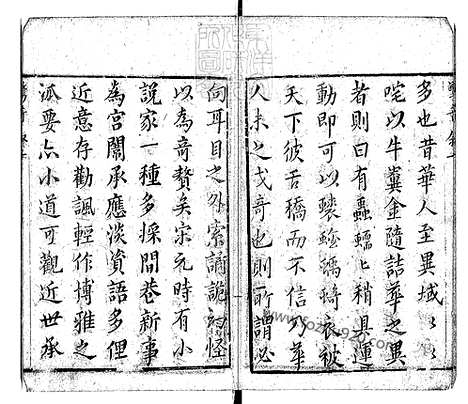 多也昔華人至異域
咤以牛糞金隨詰華之異
者則曰有蟲蠕蠕稍具運
動即可以衣被
天下彼舌撟而不信乃華
人未之或奇也則所謂必
向耳目之外索譎詭幻怪
以為奇贅矣宋元時有小
說家一種多採閭巷新事
為宮闈承應淡資語多俚
近意存勸諷輕作博雅之
派要亦小道可觀近世承